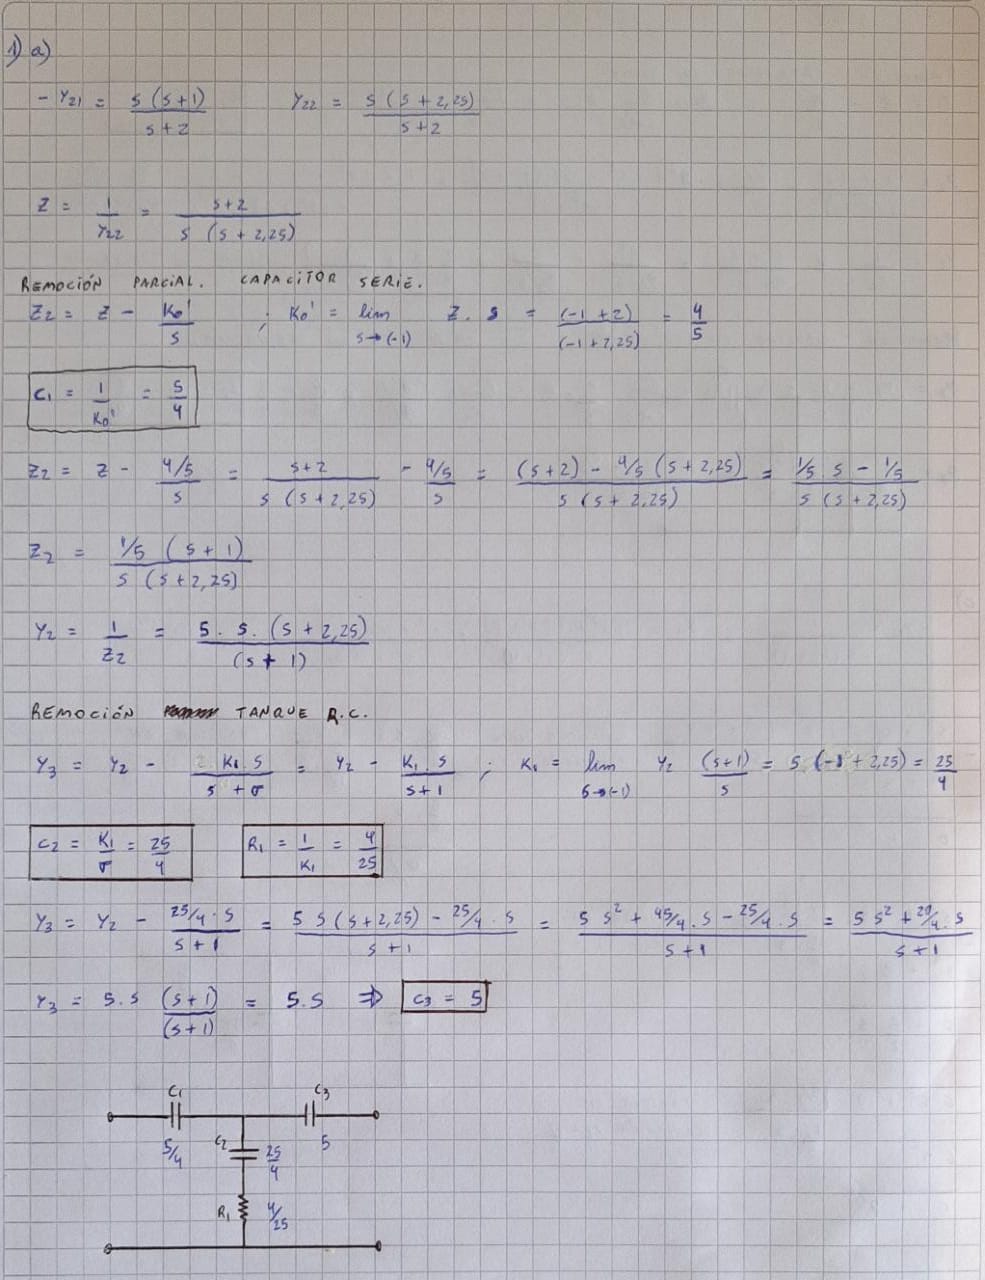 1) a)
- Y21 = s (s+1) / s+2    Y22 = s (s + 2,25) / s+2
Z = 1 / Y22 = s+2 / s (s + 2,25)
REMOCIÓN PARCIAL. CAPACITOR SERIE.
Z2 = Z - K0' / s ; K0' = lim s→(-1) Z . s = (-1 + 2) / (-1 + 2,25) = 4/5
C1 = 1 / K0' = 5/4
Z2 = Z - 4/5 / s = s+2 / s (s + 2,25) - 4/5 / s = (s+2) - 4/5 (s + 2,25) / s (s + 2,25) = 1/5 s - 1/5 / s (s + 2,25)
Z2 = 1/5 (s + 1) / s (s + 2,25)
Y2 = 1 / Z2 = 5 . s . (s + 2,25) / (s + 1)
REMOCIÓN TANQUE R.C.
Y3 = Y2 - K1 . s / s + σ = Y2 - K1 . s / s+1 ; K1 = lim s→(-1) Y2 (s+1) / s = 5 (-1 + 2,25) = 25/4
C2 = K1 / σ = 25/4    R1 = 1 / K1 = 4/25
Y3 = Y2 - 25/4 . s / s+1 = 5 s (s + 2,25) - 25/4 . s / s+1 = 5 s² + 45/4 . s - 25/4 . s / s+1 = 5 s² + 20/4 . s / s+1
Y3 = 5 . s (s+1) / (s+1) = 5 . s ⇒ C3 = 5
C1    C3
5/4    C2    25/4    5
R1    4/25